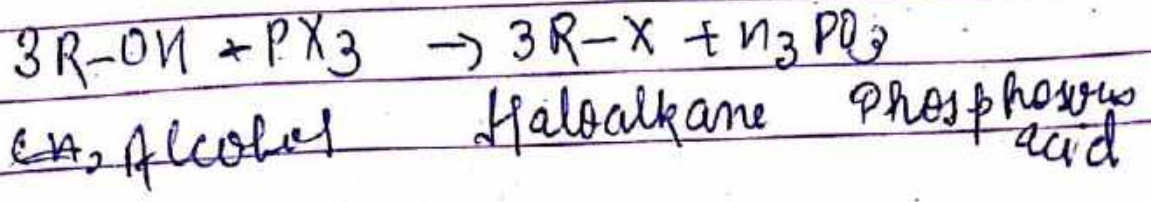 3R-OH + PX3 → 3R-X + H3PO3
Alcohol Haloalkane Phosphorus
acid